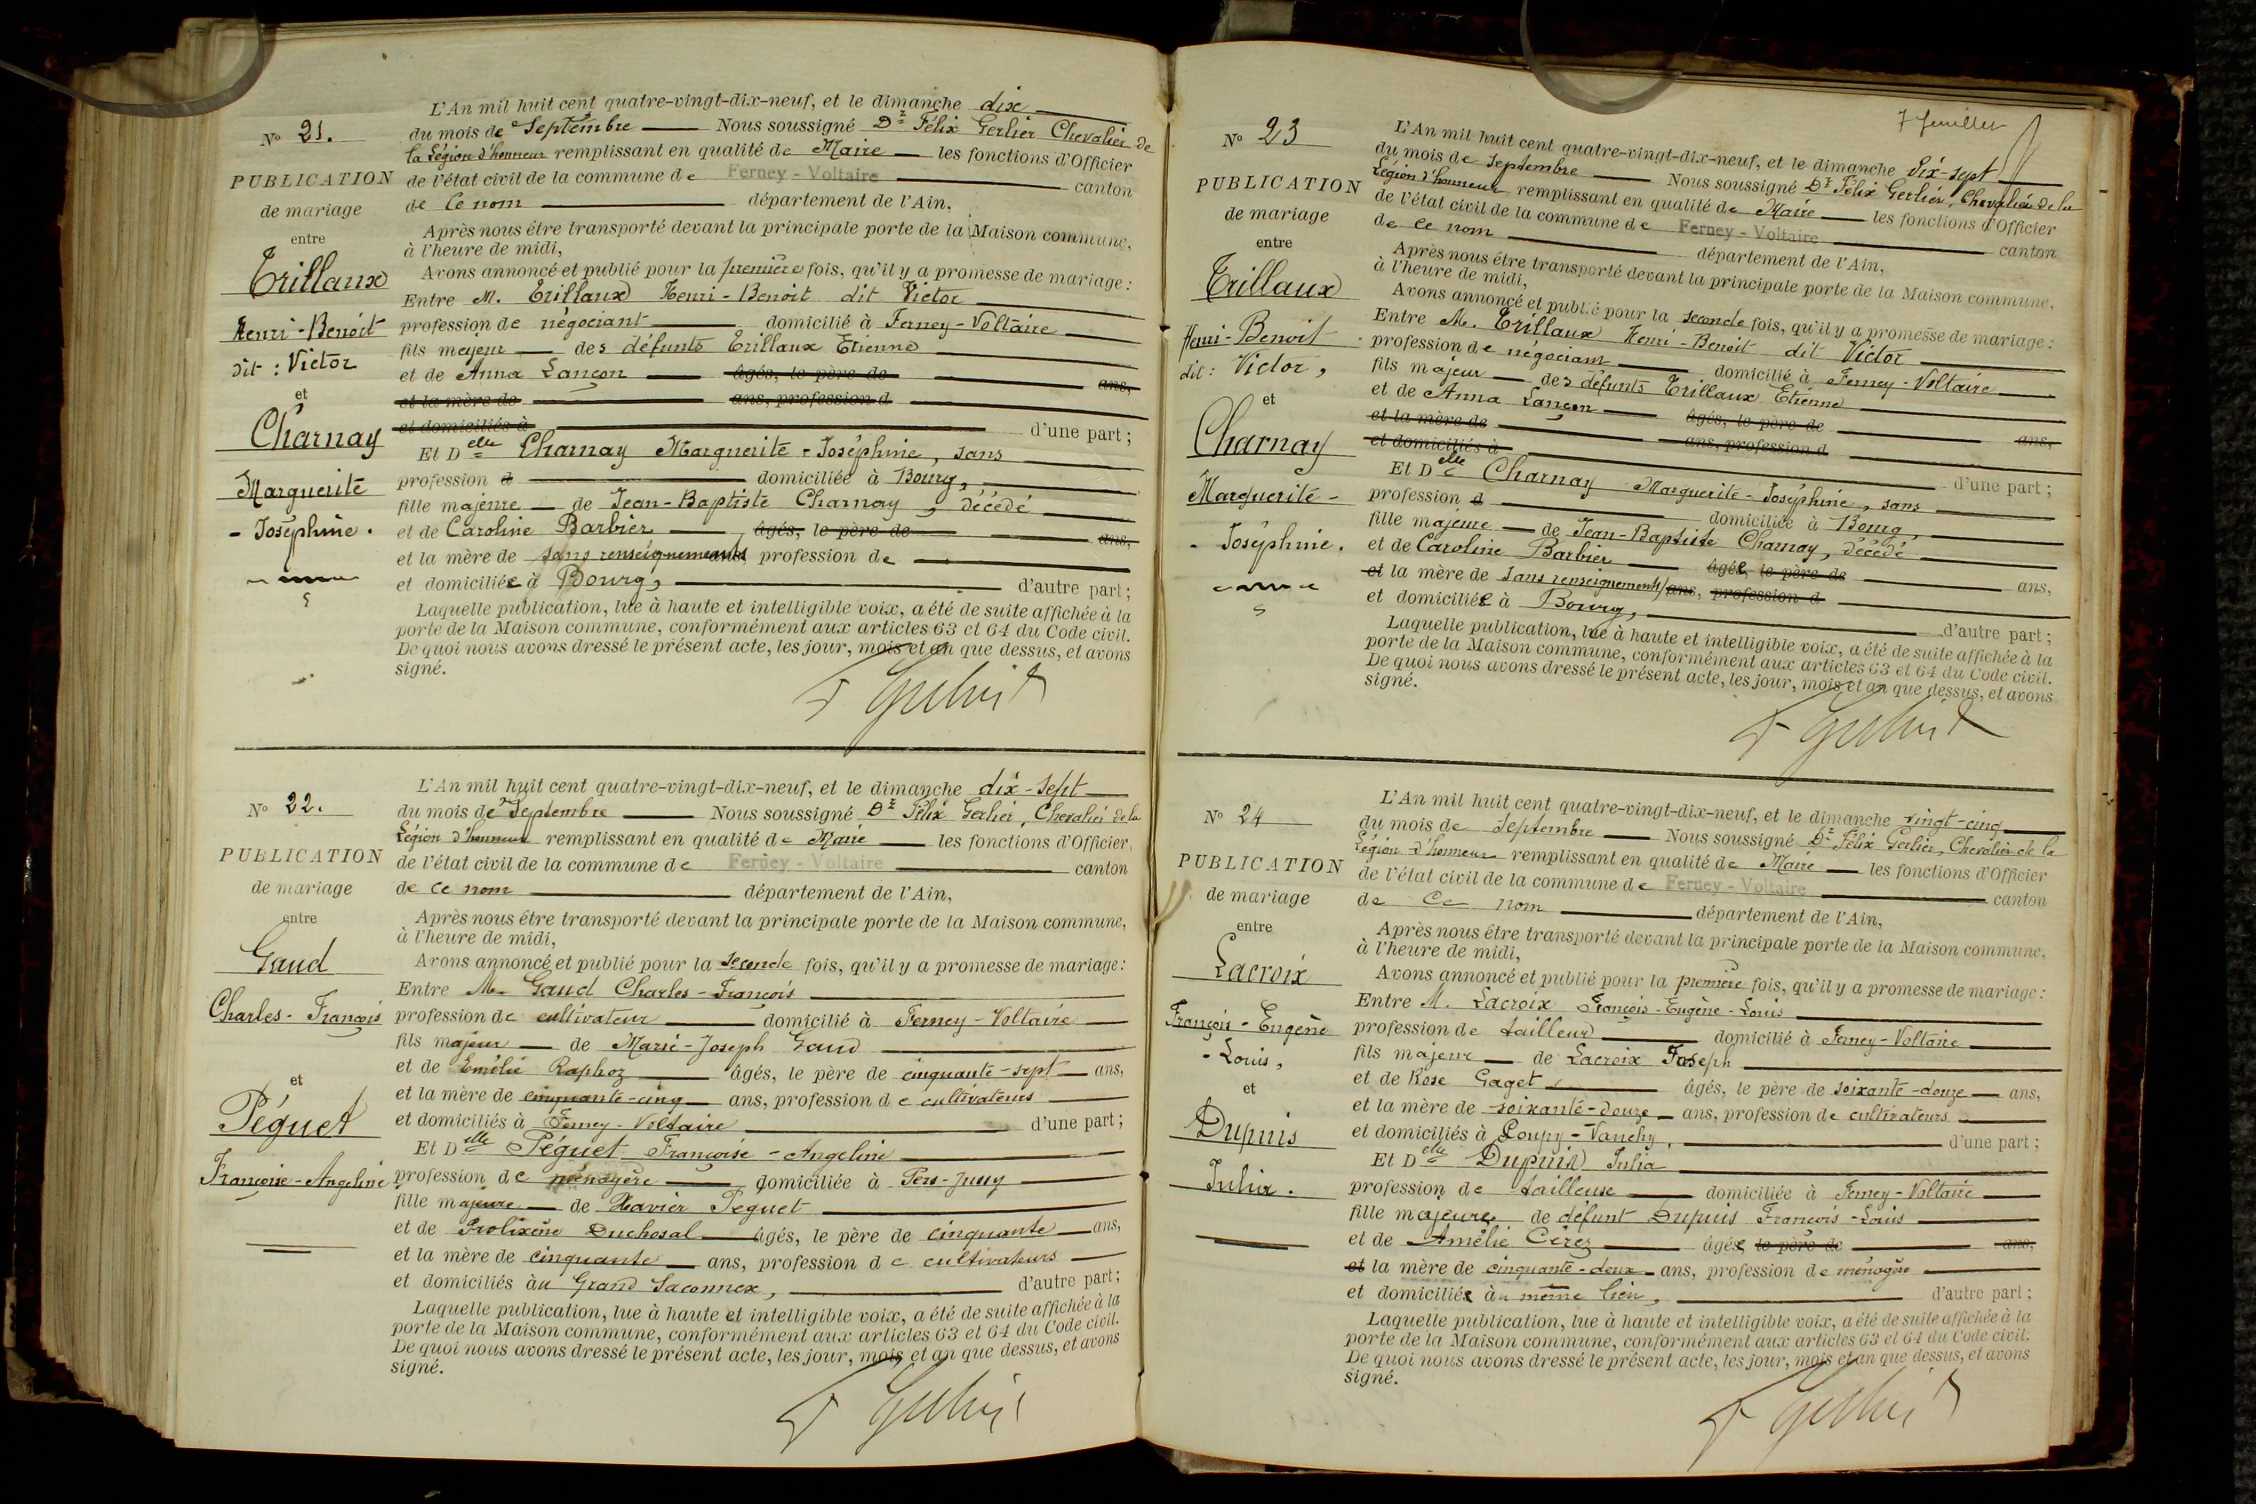 L'An mil huit cent quatre-vingt-dix-neuf, et le dimanche dix
N° 21.
du mois de Septembre Nous soussigné Dr Félix Gerlier Chevalier de
la Légion d'honneur remplissant en qualité de Maire les fonctions d'Officier
PUBLICATION
de l'état civil de la commune de Ferney - Voltaire canton
de mariage
de ce nom département de l'Ain,
entre
Après nous être transporté devant la principale porte de la Maison commune,
à l'heure de midi,
Trillaux
Avons annoncé et publié pour la première fois, qu'il y a promesse de mariage:
Entre M. Trillaux Henri-Benoit dit Victor
Henri-Benoit
profession de négociant domicilié à Ferney-Voltaire
dit: Victor
fils majeur des défunts Trillaux Etienne
et de Anna Lançon âgés, le père de ans,
et
et la mère de ans, profession d
Charnay
et domiciliés à d'une part;
Et Delle Charnay Marguerite-Joséphine, sans
Marguerite
profession d domiciliée à Bourg,
fille majeure de Jean-Baptiste Charnay, décédé
- Joséphine.
et de Caroline Barbier âgés, le père de ans,
et la mère de sans renseignements ans, profession de
et domiciliée à Bourg, d'autre part;
Laquelle publication, lue à haute et intelligible voix, a été de suite affichée à la
porte de la Maison commune, conformément aux articles 63 et 64 du Code civil.
De quoi nous avons dressé le présent acte, les jour, mois et an que dessus, et avons
signé.
F Gerlier
L'An mil huit cent quatre-vingt-dix-neuf, et le dimanche dix-sept
N° 22.
du mois de Septembre Nous soussigné Dr Félix Gerlier, Chevalier de la
Légion d'honneur remplissant en qualité de Maire les fonctions d'Officier
PUBLICATION
de l'état civil de la commune de Ferney - Voltaire canton
de mariage
de ce nom département de l'Ain,
entre
Après nous être transporté devant la principale porte de la Maison commune,
à l'heure de midi,
Gaud
Avons annoncé et publié pour la seconde fois, qu'il y a promesse de mariage:
Entre M. Gaud Charles-François
Charles-François
profession de cultivateur domicilié à Ferney-Voltaire
fils majeur de Marie-Joseph Gaud
et de Emélie Raphoz âgés, le père de cinquante-sept ans,
et
et la mère de cinquante-cinq ans, profession de cultivateurs
Péguet
et domiciliés à Ferney-Voltaire d'une part;
Et Delle Péguet Françoise-Angeline
Françoise-Angeline
profession de ménagère domiciliée à Pers-Jussy
fille majeure de Xavier Péguet
et de Prolixène Duchosal âgés, le père de cinquante ans,
et la mère de cinquante ans, profession de cultivateurs
et domiciliés au Grand Saconnex, d'autre part;
Laquelle publication, lue à haute et intelligible voix, a été de suite affichée à la
porte de la Maison commune, conformément aux articles 63 et 64 du Code civil.
De quoi nous avons dressé le présent acte, les jour, mois et an que dessus, et avons
signé.
F Gerlier
7 feuillet
L'An mil huit cent quatre-vingt-dix-neuf, et le dimanche dix-sept
N° 23
du mois de Septembre Nous soussigné Dr Félix Gerlier, Chevalier de la
Légion d'honneur remplissant en qualité de Maire les fonctions d'Officier
PUBLICATION
de l'état civil de la commune de Ferney - Voltaire canton
de mariage
de ce nom département de l'Ain,
entre
Après nous être transporté devant la principale porte de la Maison commune,
à l'heure de midi,
Trillaux
Avons annoncé et publié pour la seconde fois, qu'il y a promesse de mariage:
Entre M. Trillaux Henri-Benoit dit Victor
Henri-Benoit
profession de négociant domicilié à Ferney-Voltaire
dit: Victor,
fils majeur des défunts Trillaux Etienne
et de Anna Lançon âgés, le père de ans,
et
et la mère de ans, profession d
Charnay
et domiciliés à d'une part;
Et Delle Charnay Marguerite-Joséphine, sans
Marguerite-
profession d domiciliée à Bourg,
fille majeure de Jean-Baptiste Charnay, décédé
- Joséphine.
et de Caroline Barbier âgée, le père de ans,
et la mère de sans renseignements/ans, profession d
et domiciliée à Bourg, d'autre part;
Laquelle publication, lue à haute et intelligible voix, a été de suite affichée à la
porte de la Maison commune, conformément aux articles 63 et 64 du Code civil.
De quoi nous avons dressé le présent acte, les jour, mois et an que dessus, et avons
signé.
F Gerlier
L'An mil huit cent quatre-vingt-dix-neuf, et le dimanche vingt-cinq
N° 24
du mois de Septembre Nous soussigné Dr Félix Gerlier, Chevalier de la
Légion d'honneur remplissant en qualité de Maire les fonctions d'Officier
PUBLICATION
de l'état civil de la commune de Ferney - Voltaire canton
de mariage
de ce nom département de l'Ain,
entre
Après nous être transporté devant la principale porte de la Maison commune,
à l'heure de midi,
Lacroix
Avons annoncé et publié pour la première fois, qu'il y a promesse de mariage:
Entre M. Lacroix François-Eugène-Louis
François-Eugène
profession de tailleur domicilié à Ferney-Voltaire
- Louis,
fils majeur de Lacroix Joseph
et
et de Rose Gaget âgés, le père de soixante-douze ans,
et la mère de soixante-douze ans, profession de cultivateurs
Dupuis
et domiciliés à Poupy-Vanchy, d'une part;
Et Delle Dupuis Julia
Julia.
profession de tailleuse domiciliée à Ferney-Voltaire
fille majeure de défunt Dupuis François-Louis
et de Amélie Cérez âgée le père de ans,
et la mère de cinquante-deux ans, profession de ménagère
et domiciliée au même lieu, d'autre part;
Laquelle publication, lue à haute et intelligible voix, a été de suite affichée à la
porte de la Maison commune, conformément aux articles 63 et 64 du Code civil.
De quoi nous avons dressé le présent acte, les jour, mois et an que dessus, et avons
signé.
F Gerlier